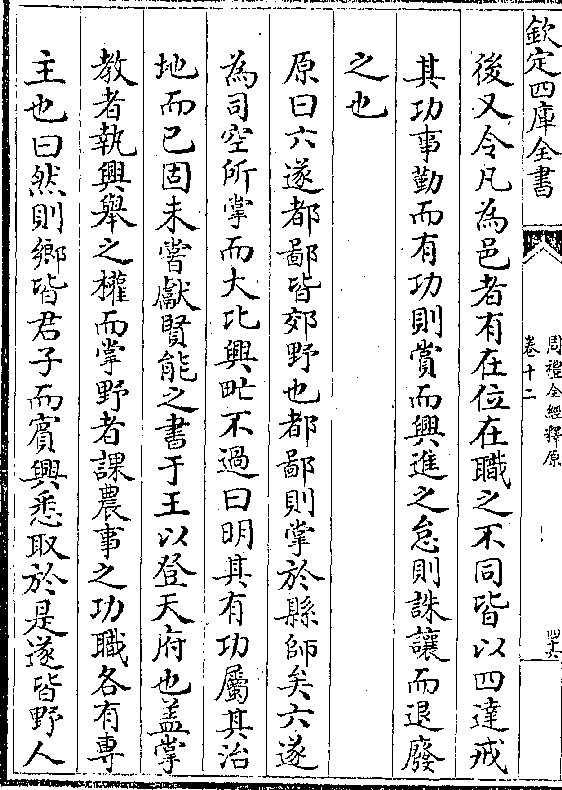 欽定四庫全書
周禮全經釋原
卷十二
後又令凡為邑者有在位在職之不同皆以四達戒
其功事勤而有功則賞而興進之怠則誅讓而退廢
之也
原曰六遂都鄙皆郊野也都鄙則掌於縣師矣六遂
為司空所掌而大比興甿不過曰明其有功屬其治
地而已固未嘗獻賢能之書于王以登天府也盖掌
教者執興舉之權而掌野者課農事之功職各有專
主也曰然則鄉皆君子而賓興悉取於是遂皆野人